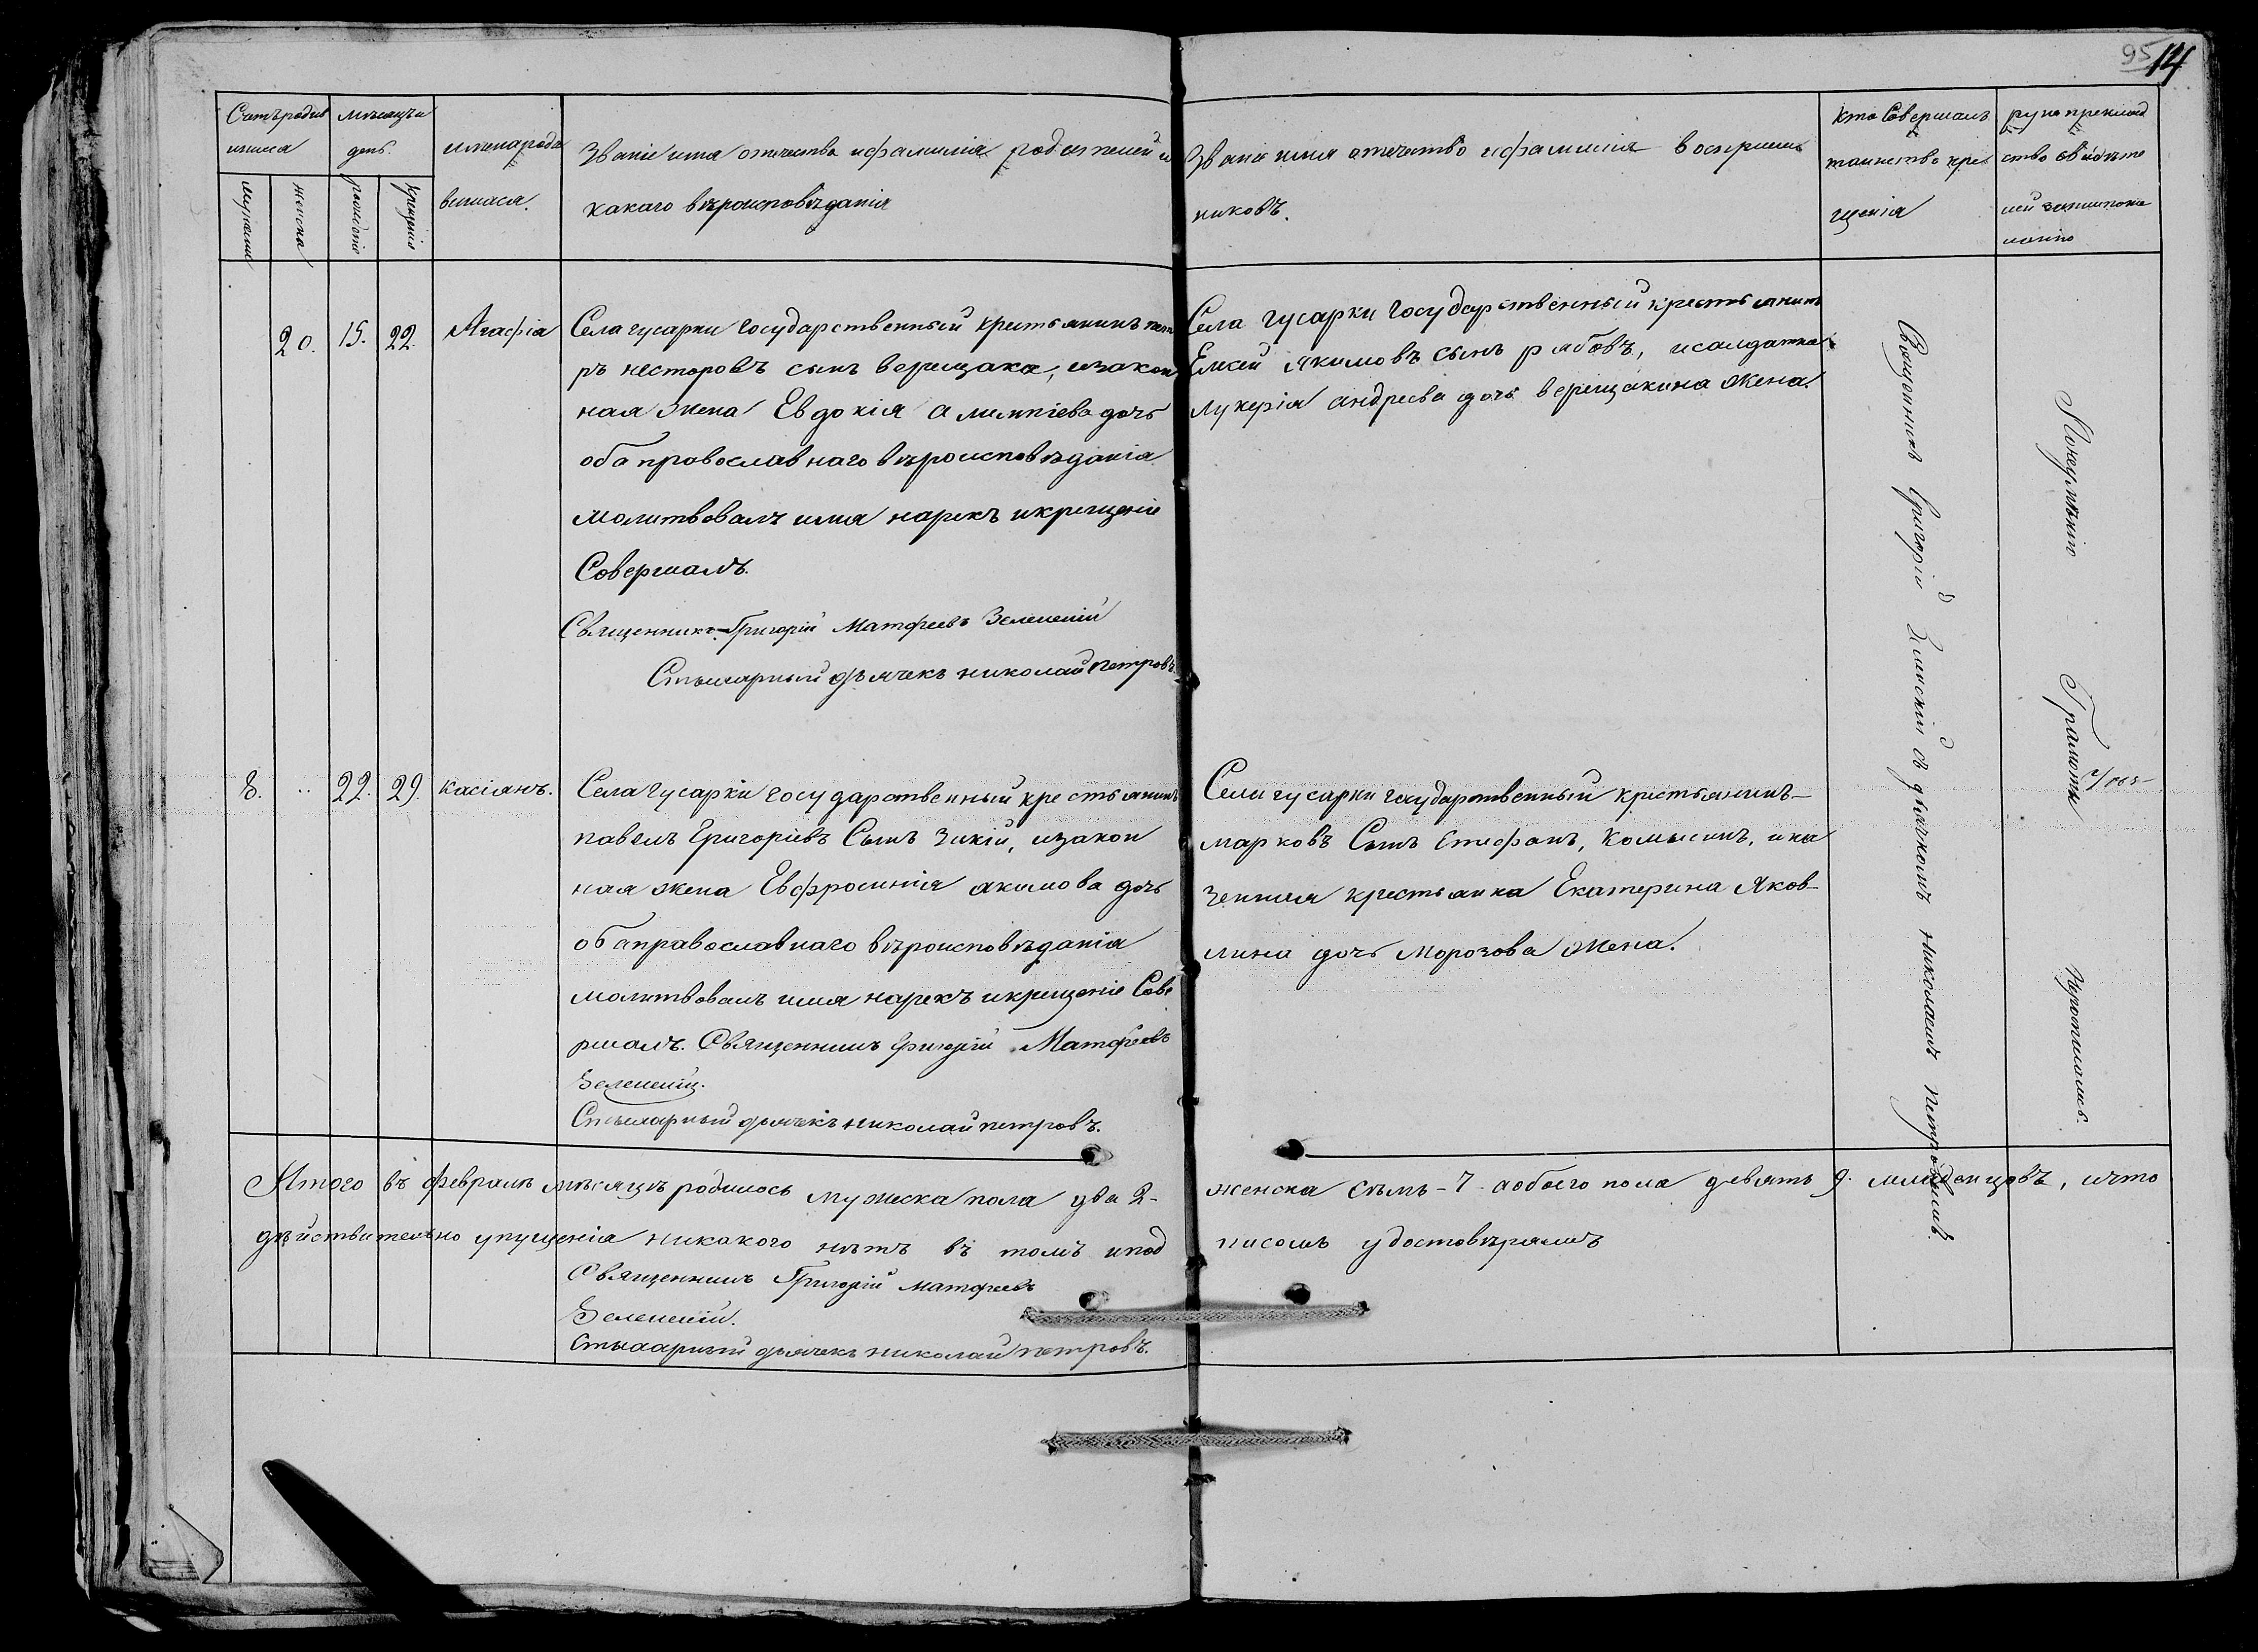 95 14
Счетъ родив
шихся
мужеска
женска
Мѣсяцъ и
день.
рожденія
крещенія
имена роди
вшихся.
Званіе имя отчество и фамилія родителей и
какаго вѣроисповѣданія
Званіе имя отечество и фамилія воспріем
никовъ.
кто Совершалъ
таинство кре
щенія
руко приклад
ство свидѣте
лей записи по же
ланію
20. 15. 22. Агафія
Села гусарки государственный крестьянинъ пет
ръ несторовъ сынъ верещака, изакон
ная жена Евдокія алимпіева дочь
оба православнаго вѣроисповѣданія
Молитвовалъ имя нарекъ икрещеніе
Совершалъ.
Священникъ Григорій Матфеевъ Зеленскій
Стыхарный дьячекъ николай петровъ
Села гусарки государственный крестьянинъ
Елисей якимовъ сынъ рябовъ, исолдатка
лукерія андреева дочь верещакина жена.
8. .. 22. 29. касіянъ.
Села гусарки государственный крестьянинъ
павелъ григоріевъ Сынъ Зикій, изакон
ная жена Евфросинія акимова дочь
оба православнаго вѣроисповѣданія
молитвовалъ имя нарекъ икрещеніе Сове
ршалъ. Священникъ Григорій Матфеевъ
Зеленскій.
Стыхарный дьячекъ николай петровъ.
Села гусарки государственный крестьянинъ
марковъ Сынъ Стефанъ, и ка
зенная крестьянка Екатерина Яков-
лина дочь Морозова жена.
Священникъ Григорій Зеленскій съ дьячкомъ николаемъ петровымъ.
По неумѣнію Грамоты
Итого въ февралѣ мѣсяцѣ родилось мужеска пола два 2-
женска сѣмъ-7 а обоего пола девять 9. младенцовъ, ичто
дѣйствительно упущенія никакого нѣтъ въ томъ ипод
писомъ удостовѣряемъ
Священникъ Григорій матфеевъ
Зеленскій.
Стыхарный дьячекъ николай петровъ.